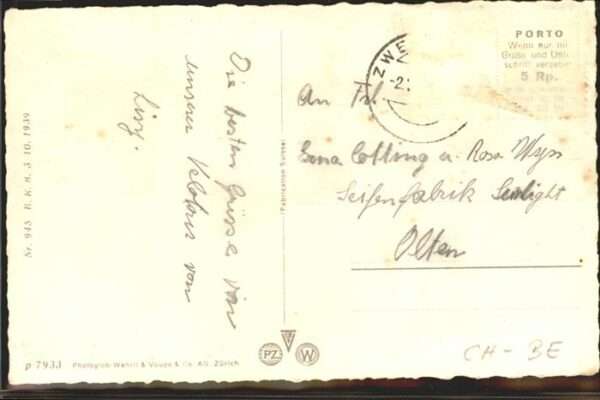 Nr. 945 B.K.M. 3 10. 1939
Die besten Grüsse von
unserer Velotour von
Lisy.
ZWE
-2.
PORTO
Wenn nur mit
Gruße und Unter-
schrift versehen
5 Rp.
An Frl.
Cotting u. Rosa Wyss
Seifenfabrik Sunlight
Olten
PZ
W
p 7933 Photoglob-Wehrli & Vouga & Co. AG. Zürich
CH - BE